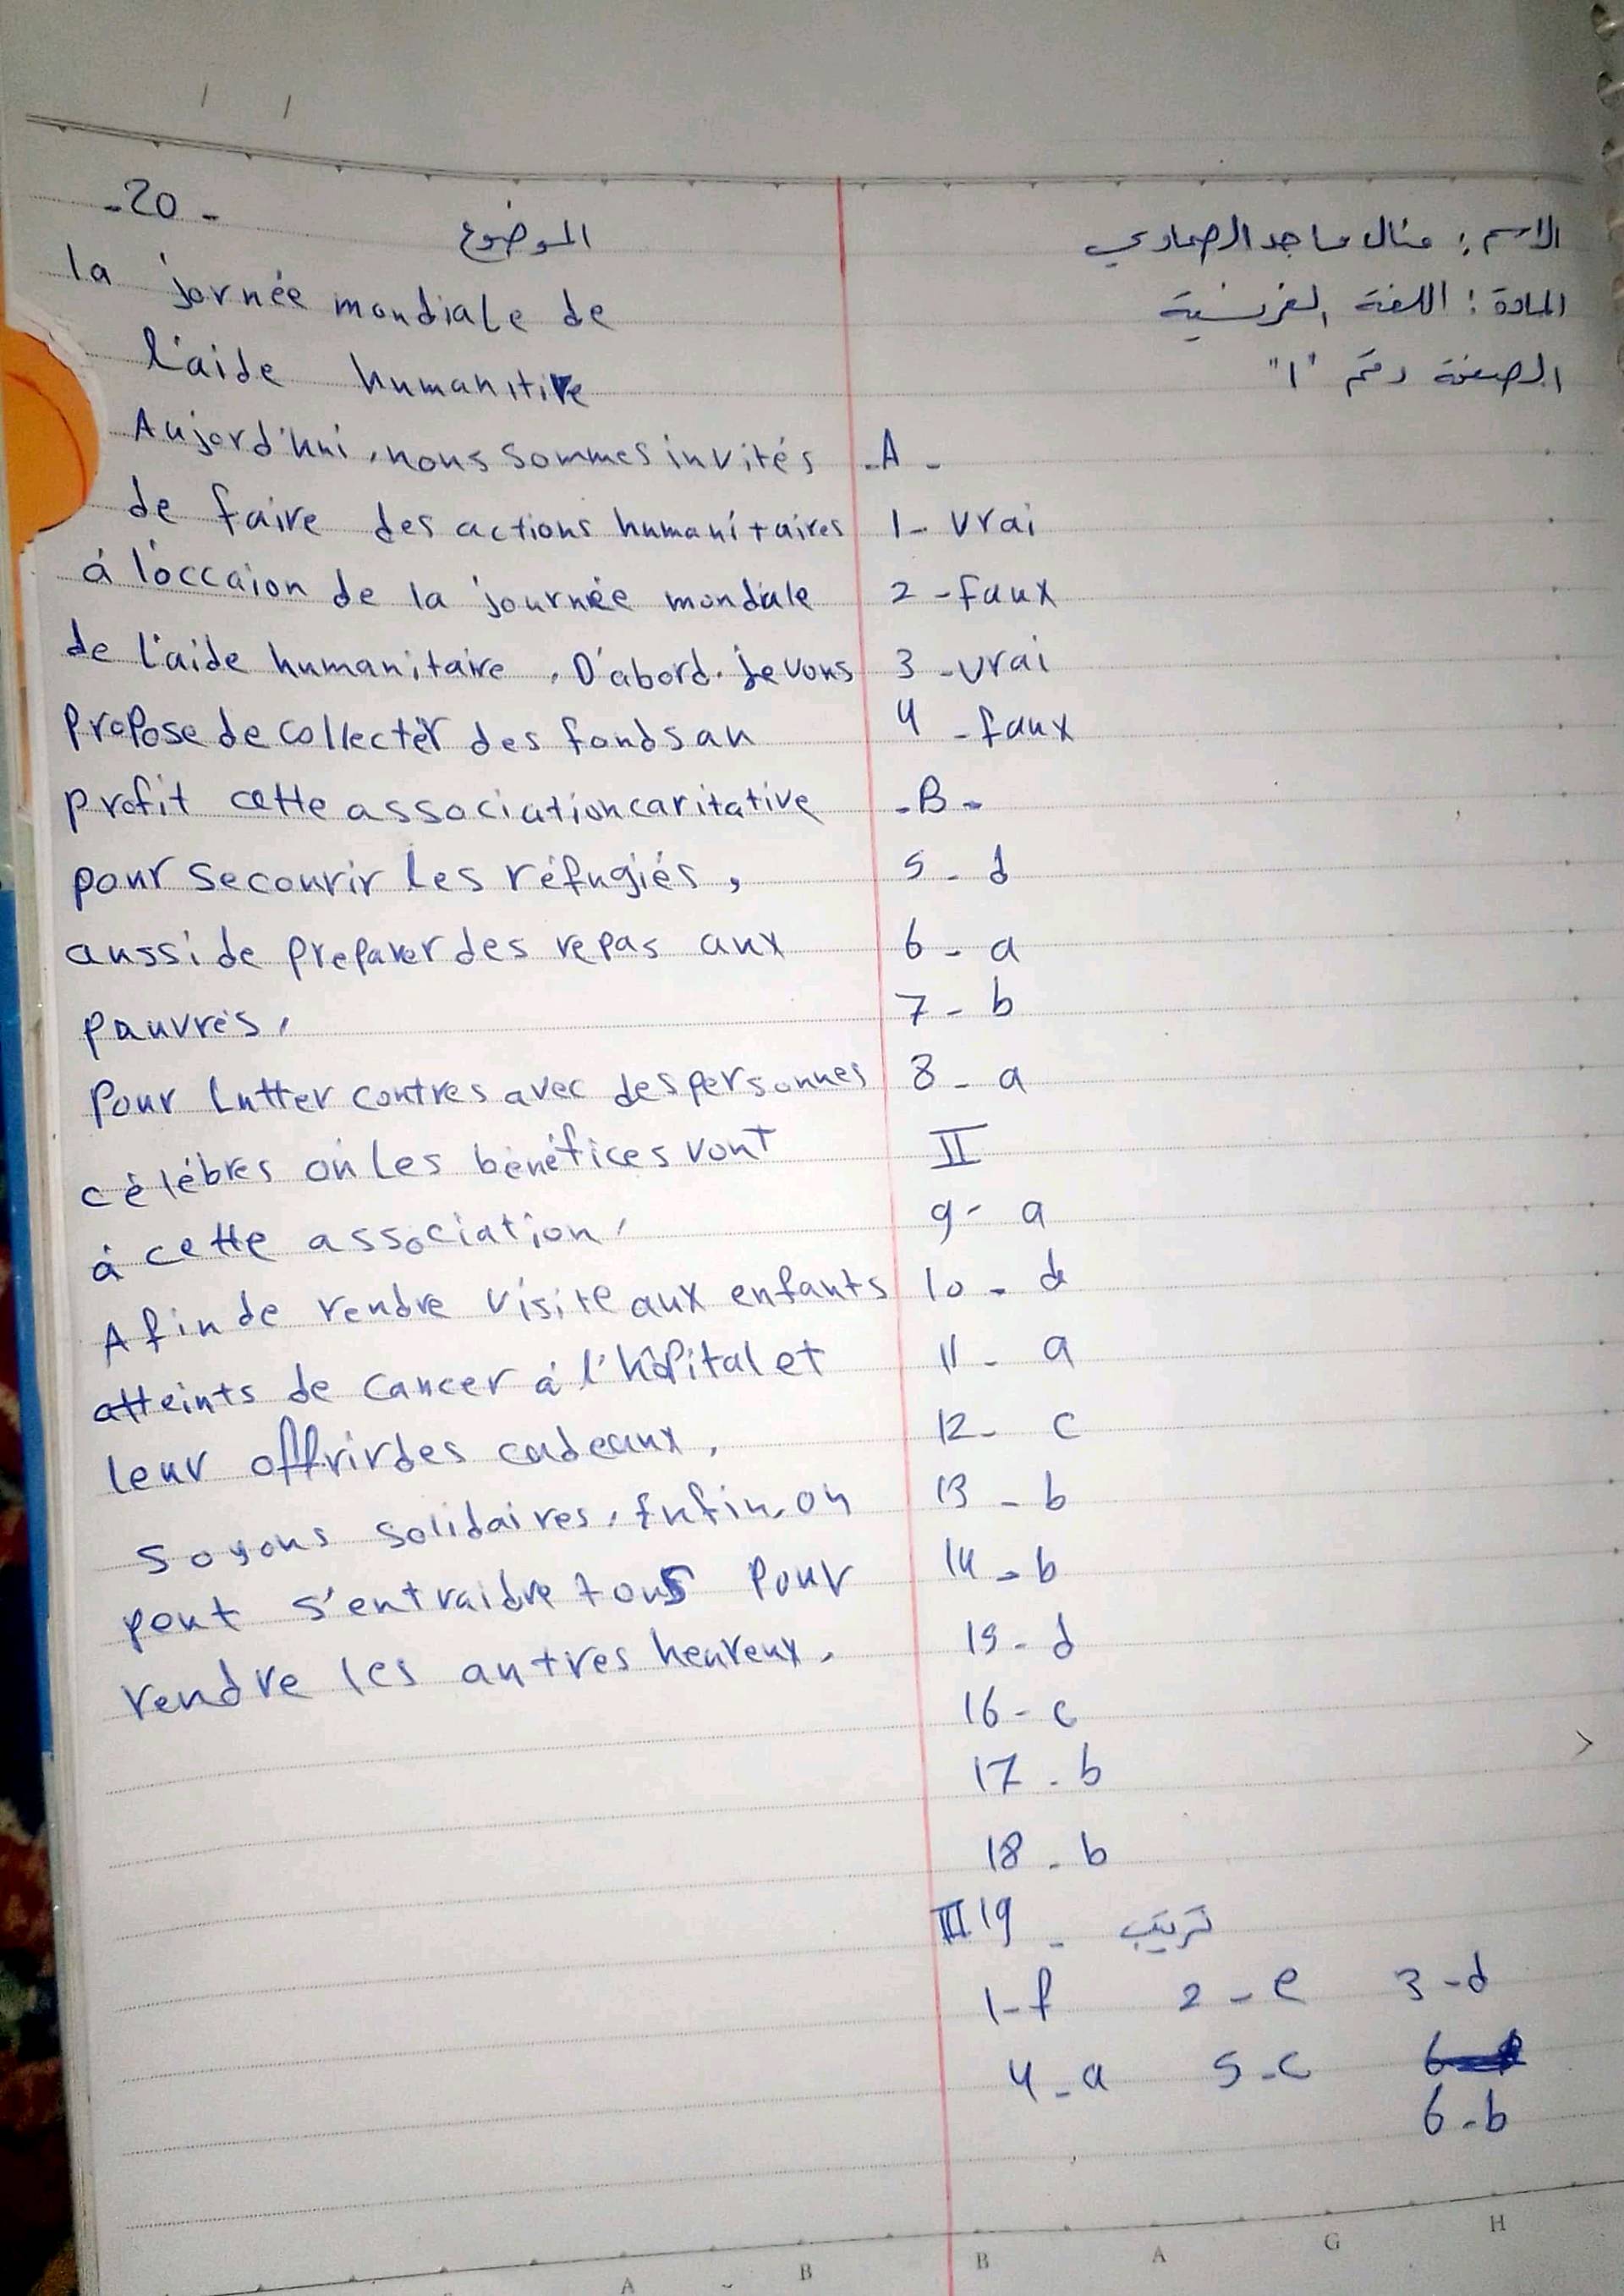 الاسم : منال ماجد الصمادي
المادة : اللغة الفرنسية
الصفحة رقم "1"
- A -
1 - vrai
2 - faux
3 - vrai
4 - faux
- B -
5 - d
6 - a
7 - b
8 - a
II
9 - a
10 - d
11 - a
12 - c
13 - b
14 - b
15 - d
16 - c
17 - b
18 - b
III 19 - ترتيب
1 - f 2 - e 3 - d
4 - a 5 - c
6 - b
- 20 -
الموضوع
la jornée mondiale de
l'aide humanitire
Aujord'hui, nous sommes invités
de faire des actions humanitaires
á l'occaion de la journée mondiale
de l'aide humanitaire. D'abord. je vous
propose de collecter des fonds au
profit cette association caritative
pour secourir les réfugiés,
aussi de preparer des repas aux
pauvres,
Pour lutter contres avec des personnes
célébres où les bénéfices vont
á cette association,
Afin de rendre visite aux enfants
atteints de cancer á l'hôpital et
leur offrir des cadeaux,
soyons solidaires, Enfin, on
peut s'entraidre tous pour
rendre les autres heureux,
A B B A G H